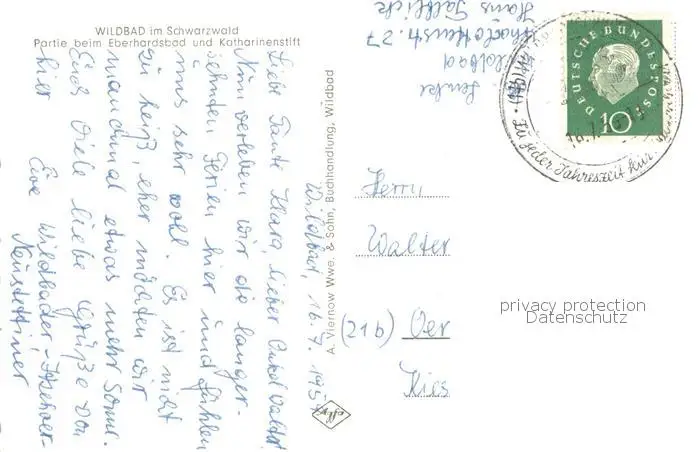 WILDBAD im Schwarzwald
Partie beim Eberhardsbad und Katharinenstift
Wildbad, 16. 7. 195
Liebe Tante Klara, lieber Onkel Walter!
Nun verleben wir die langer-
sehnten Ferien hier und fühlen
uns sehr wohl. Es ist nicht
zu heiß, eher möchten wir
manchmal etwas mehr Sonne.
Euch viele liebe Grüße von
hier Eure Wildbader-
Neustettiner
A. Viernow Wwe. & Sohn, Buchhandlung, Wildbad
Wildbad
Charlottenstr. 27
Hans
DEUTSCHE BUNDESPOST
10
Zu jeder Jahreszeit Kur
Herrn
Walter
(21b) Oer
Kies
privacy protection
Datenschutz